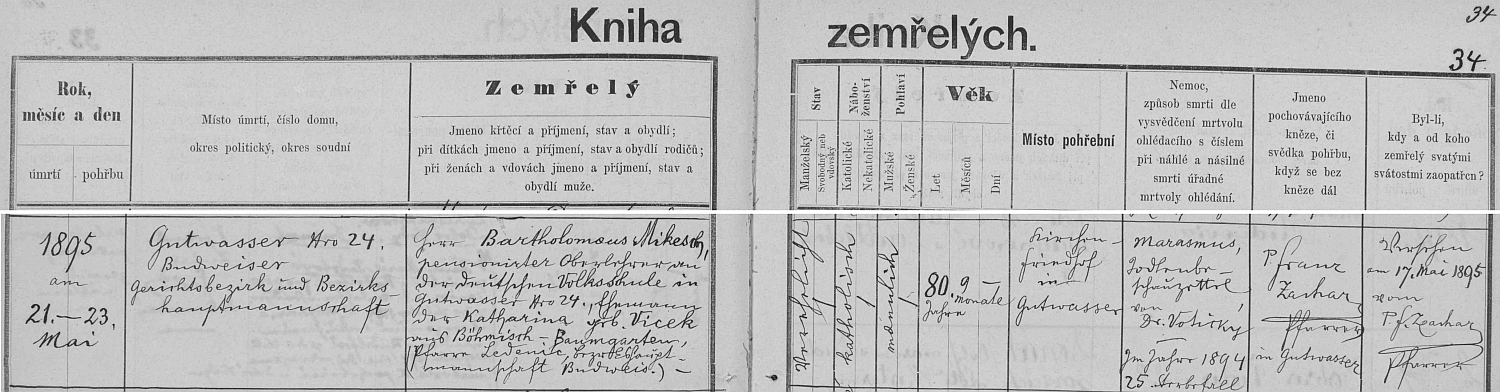 Kniha zemřelých.
34
34.
Rok,
měsíc a den
úmrtí
pohřbu
Místo úmrtí, číslo domu,
okres politický, okres soudní
Zemřelý
Jmeno křtěcí a příjmení, stav a obydlí;
při dítkách jmeno a příjmení, stav a obydlí rodičů;
při ženách a vdovách jmeno a příjmení, stav a
obydlí muže.
Stav
Manželský
Svobodný neb
vdovský
Nábo-
ženství
Katolické
Nekatolické
Pohlaví
Mužské
Ženské
Věk
Let
Měsíců
Dní
Místo pohřební
Nemoc,
způsob smrti dle
vysvědčení mrtvolu
ohlédacího s číslem
při náhlé a násilné
smrti úřadné
mrtvoly ohledání.
Jmeno
pochovávajícího
kněze, či
svědka pohřbu,
když se bez
kněze dál
Byl-li,
kdy a od koho
zemřelý svatými
svátostmi zaopatřen?
1895
am
21.–23.
Mai
Gutwasser Nro 24.
Budweiser
Gerichtsbezirk und Bezirks-
hauptmannschaft
Herr Bartholomaeus Mikesch,
pensionirter Oberlehrer an
der deutschen Volksschule in
Gutwasser Nro 24, Ehemann
der Katharina geb. Vicek
aus Böhmisch-Baumgarten,
(Pfarre Ledenic, Bezirkshaupt-
mannschaft Budweis.) –
Verehelicht
katholisch
1
männlich
1
80 Jahre
9 Monate
–
Kirchen-
Friedhof
in
Gutwasser
Marasmus,
Todtenbe-
schauzettel
von
Dr. Voticky
Im Jahre 1894
25 Sterbefäll
P. Franz
Zachar
Pfarrer
in Gutwasser
Versehen
am 17. Mai 1895
vom
P. F. Zachar
Pfarrer